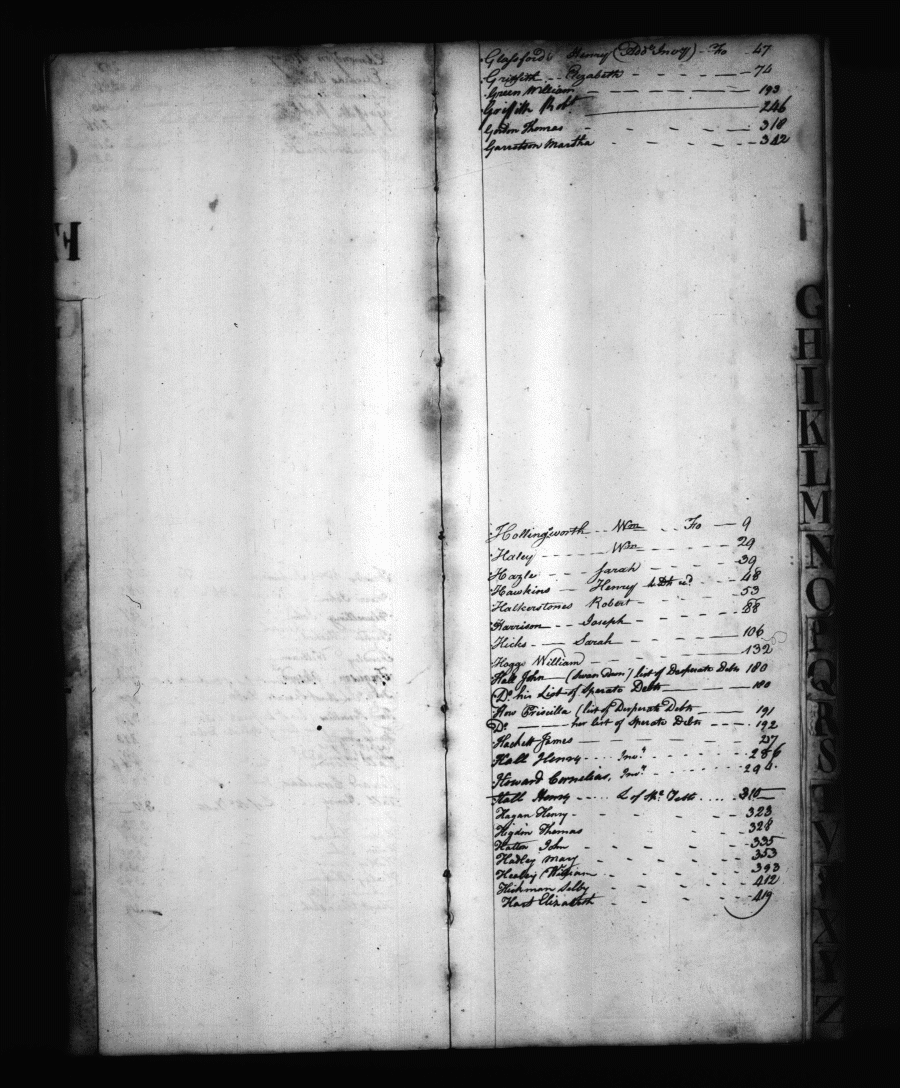 Glassford Henry (Add. Invy) - Fo - 47
Griffith - Elizabeth - 74
Green William - 193
Griffith Robt - 246
Gordon Thomas - 318
Garretson Martha - 342
H
G
H
I
K
L
M
N
O
P
Q
R
S
T
V
X
Y
Z
Hollingsworth - Wm - Fo - 9
Haley - Wm - 29
Hazle - Sarah - 39
Hawkins - Henry - 48
Halkerstones Robert - 53
Harrison - Joseph - 88
Hicks - Sarah - 106
Hogg William - 132
Hall John - (Swan Town) list of Desperate Debts 180
Do his List of Sperate Debts - 180
How Priscilla / list of Desperate Debts - 191
Do - her list of Sperate Debts - 192
Hackett James - 257
Hall Henry - Invy - 286
Howard Cornelius, Invy - 294
Hall Henry - L of Sp. Debts - 310
Hagan Henry - 323
Higdon Thomas - 328
Hatton John - 335
Hadley Mary - 353
Heeley William - 393
Hickman Selby - 412
Hart Elizabeth - 419